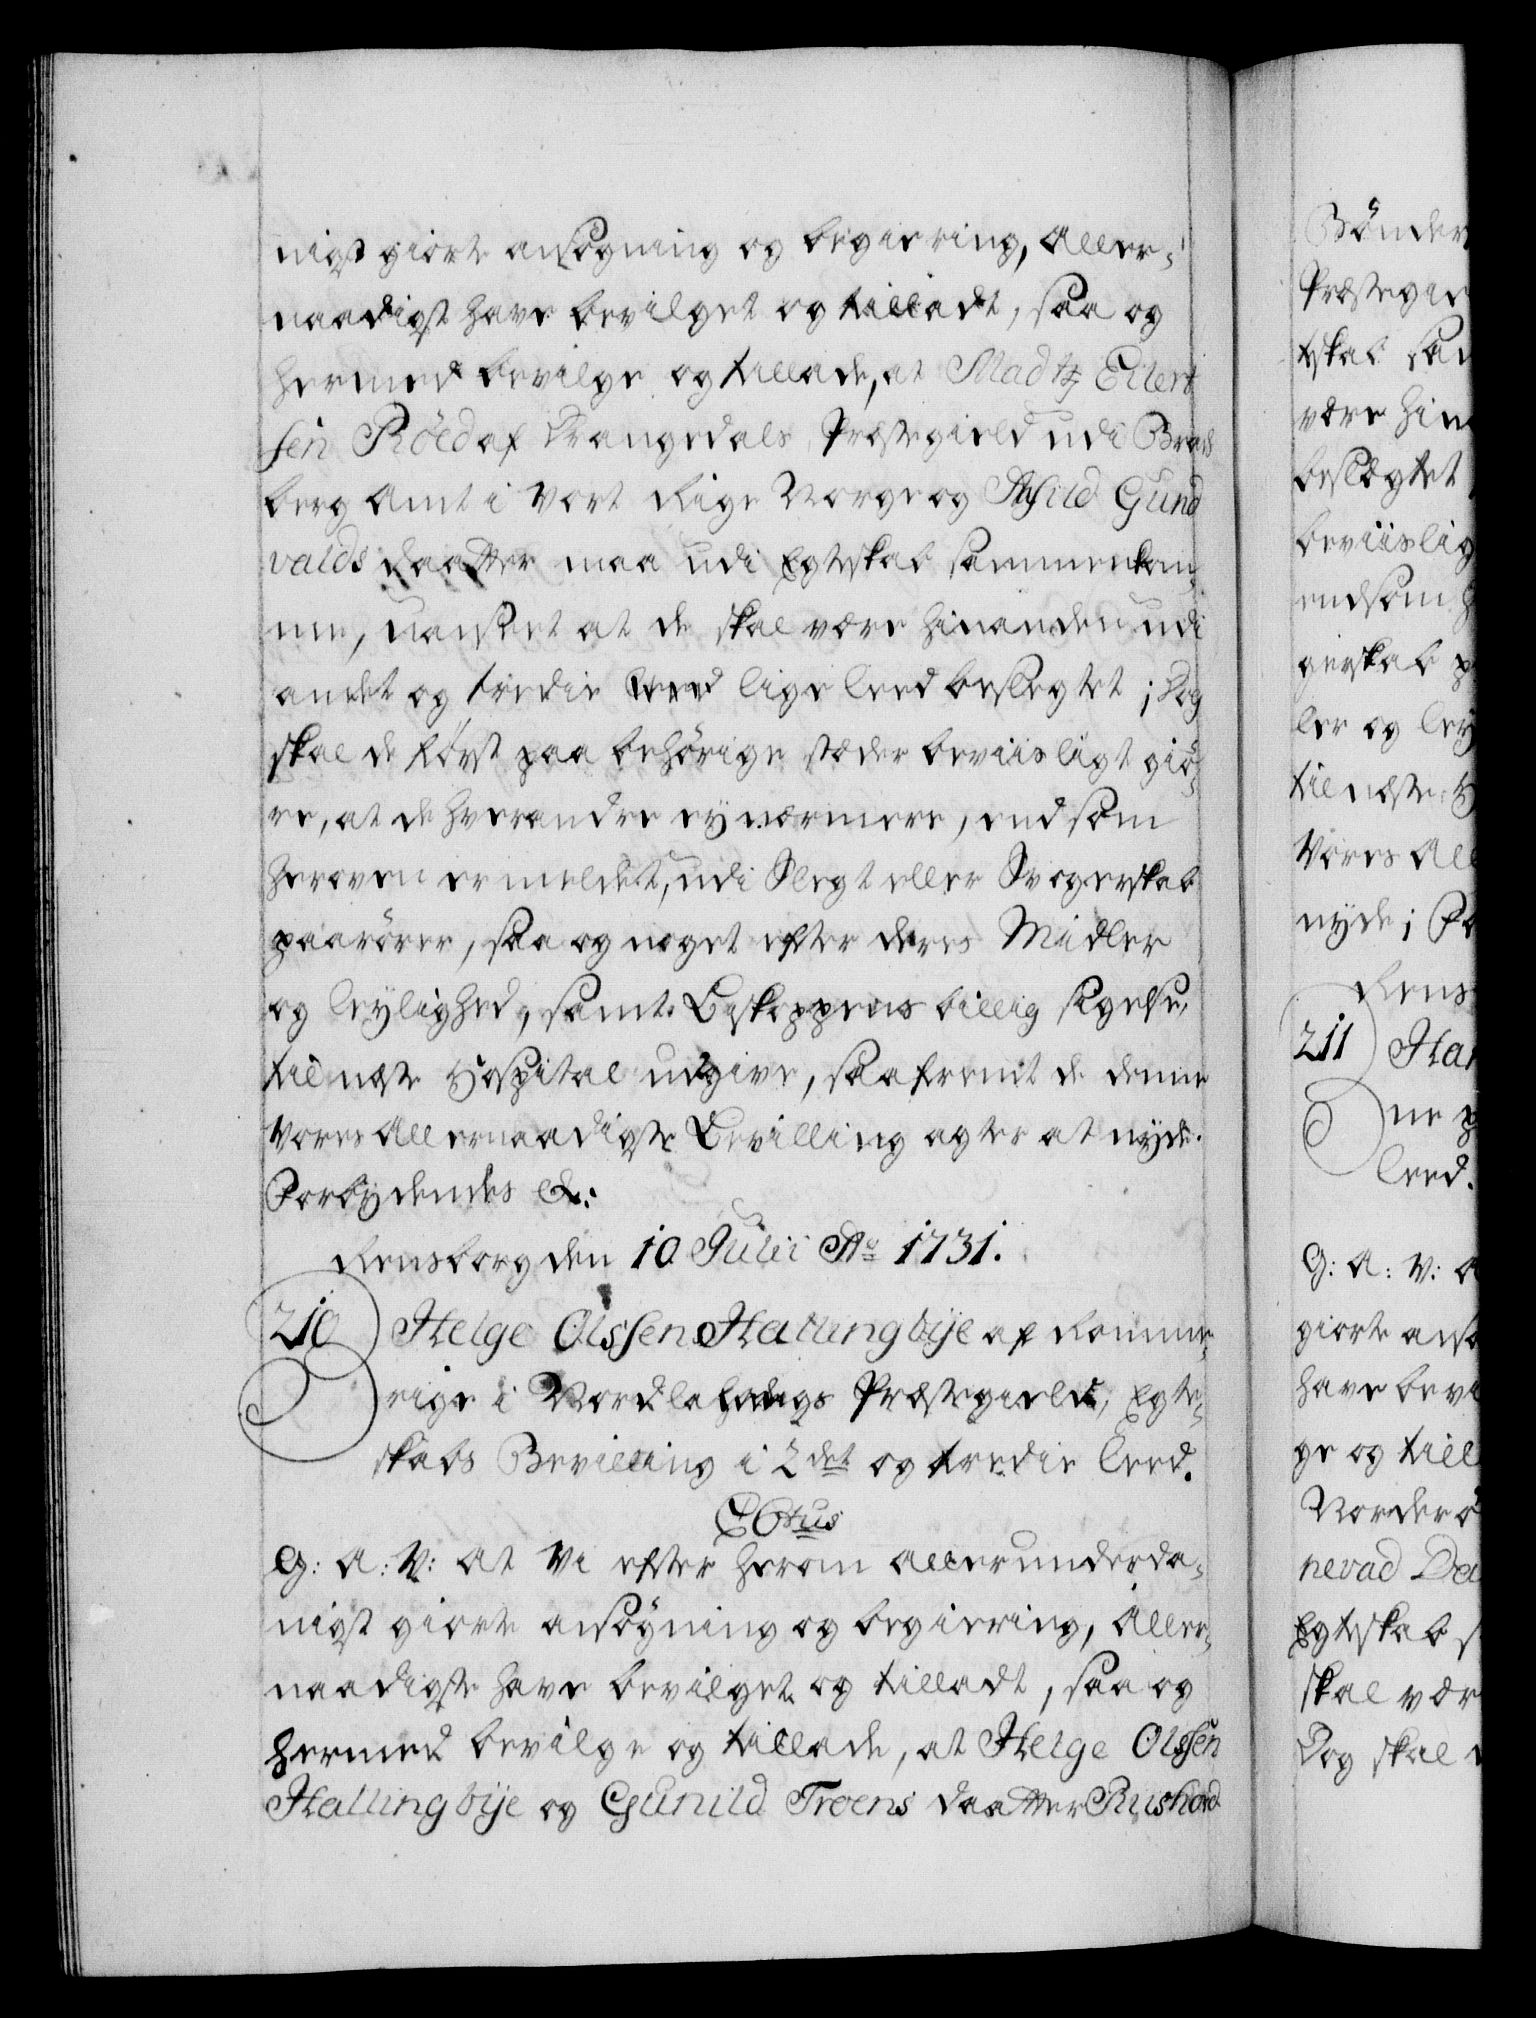 nigst giorte ansøgning og begiering, Aller-
naadigst have bevilget og tilladt, saa og
hermed bevilge og tillade, at Madtz Eilert
sen Röed af Drangedals Præstegield udi Brads
berg Amt i Vort Rige Norge og Aasild Gund
valds daatter maa udi Egteskab sammenkom-
me, uanseet at de skal være hinanden udi
andet og tredie lige leed beslegtet; Dog
skal de först paa behörige stæder beviisligt giö-
re, at de hverandre ey nærmere, end som
heroven er meldet, udi Slegt eller Svogerskab
paarörer, saa og noget efter deres Midler
og leylighed, samt Biskoppens billig sigelse,
til neste Hospital udgive, saafremt de denne
Vores Allernaadigste Bevilling agter at nyde.
Forbydendes &:
Rensborg den 10 Julii Ao 1731.
210 Helge Olssen Hallingbye af Romme-
rige i Nordlehougs Præstegield, Egte-
skabs Bevilling i 2det og tredie leed.
C6tus
G: A: V: At Vi efter herom allerunderda-
nigst giorte ansøgning og begiering, Aller-
naadigste have bevilget og tilladt, saa og
hermed bevilge og tillade, at Helge Olssen
Hallingbye og Gunild Troens daatter Rushord
Bönder
Præstegie
tskab sam
være hina
beslægtet
beviislig
endsom h
gerskab p
ler og ley
til næste H
Vores All
nyde; Fo
Rens
211 Han
ne p
leed.
G: A: V: A
giorte ansö
have bevi
ge og till
Norderö
nevad Da
Egteskab s
skal vær
Dog skal d